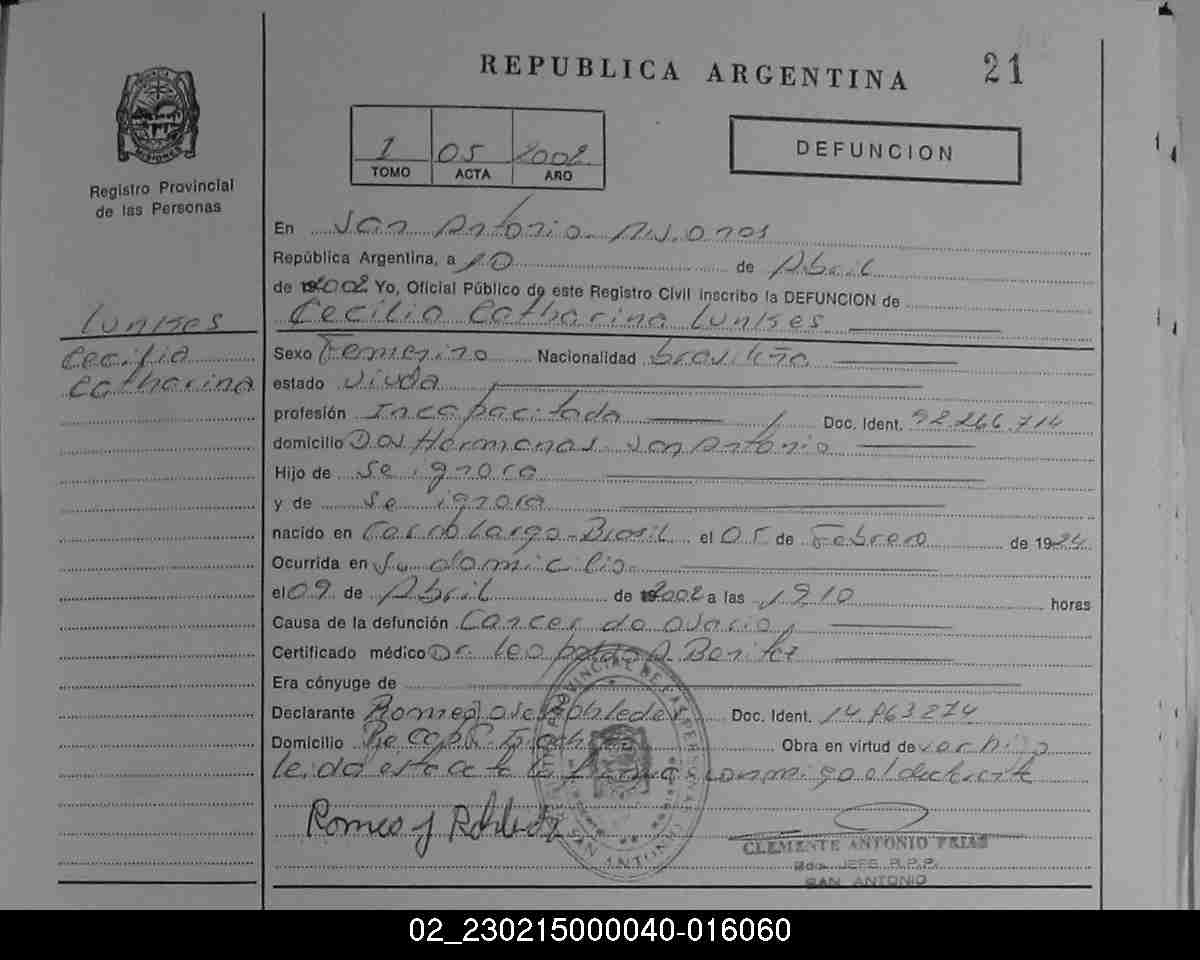 REPUBLICA ARGENTINA
21
MISIONES
Registro Provincial
de las Personas
1 05 2002
TOMO ACTA AÑO
DEFUNCION
En San Antonio
República Argentina, a 10 de Abril
de 2002 Yo, Oficial Público de este Registro Civil inscribo la DEFUNCION de
Lunkes
Cecilia Catharina Lunkes
Cecilia
Catharina
Sexo Femenino Nacionalidad brasileña
estado viuda
profesión Incapacitada Doc. Ident. 92.266.714
domicilio Dos Hermanas San Antonio
Hijo de se ignora
y de se ignora
nacido en Cerro Largo-Brasil el 05 de Febrero de 1924
Ocurrida en su domicilio
el 09 de Abril de 2002 a las 1910 horas
Causa de la defunción Cancer de ovario
Certificado médico Dr. Leopoldo A. Benitez
Era cónyuge de
Declarante Romeo Jose Doc. Ident. 14.863.274
Domicilio Obra en virtud de ser hijo
leida esta acta la firma conmigo el
Romeo J
CLEMENTE ANTONIO FRIAS
JEFE R.P.P.
SAN ANTONIO
SAN ANTONIO
02_230215000040-016060